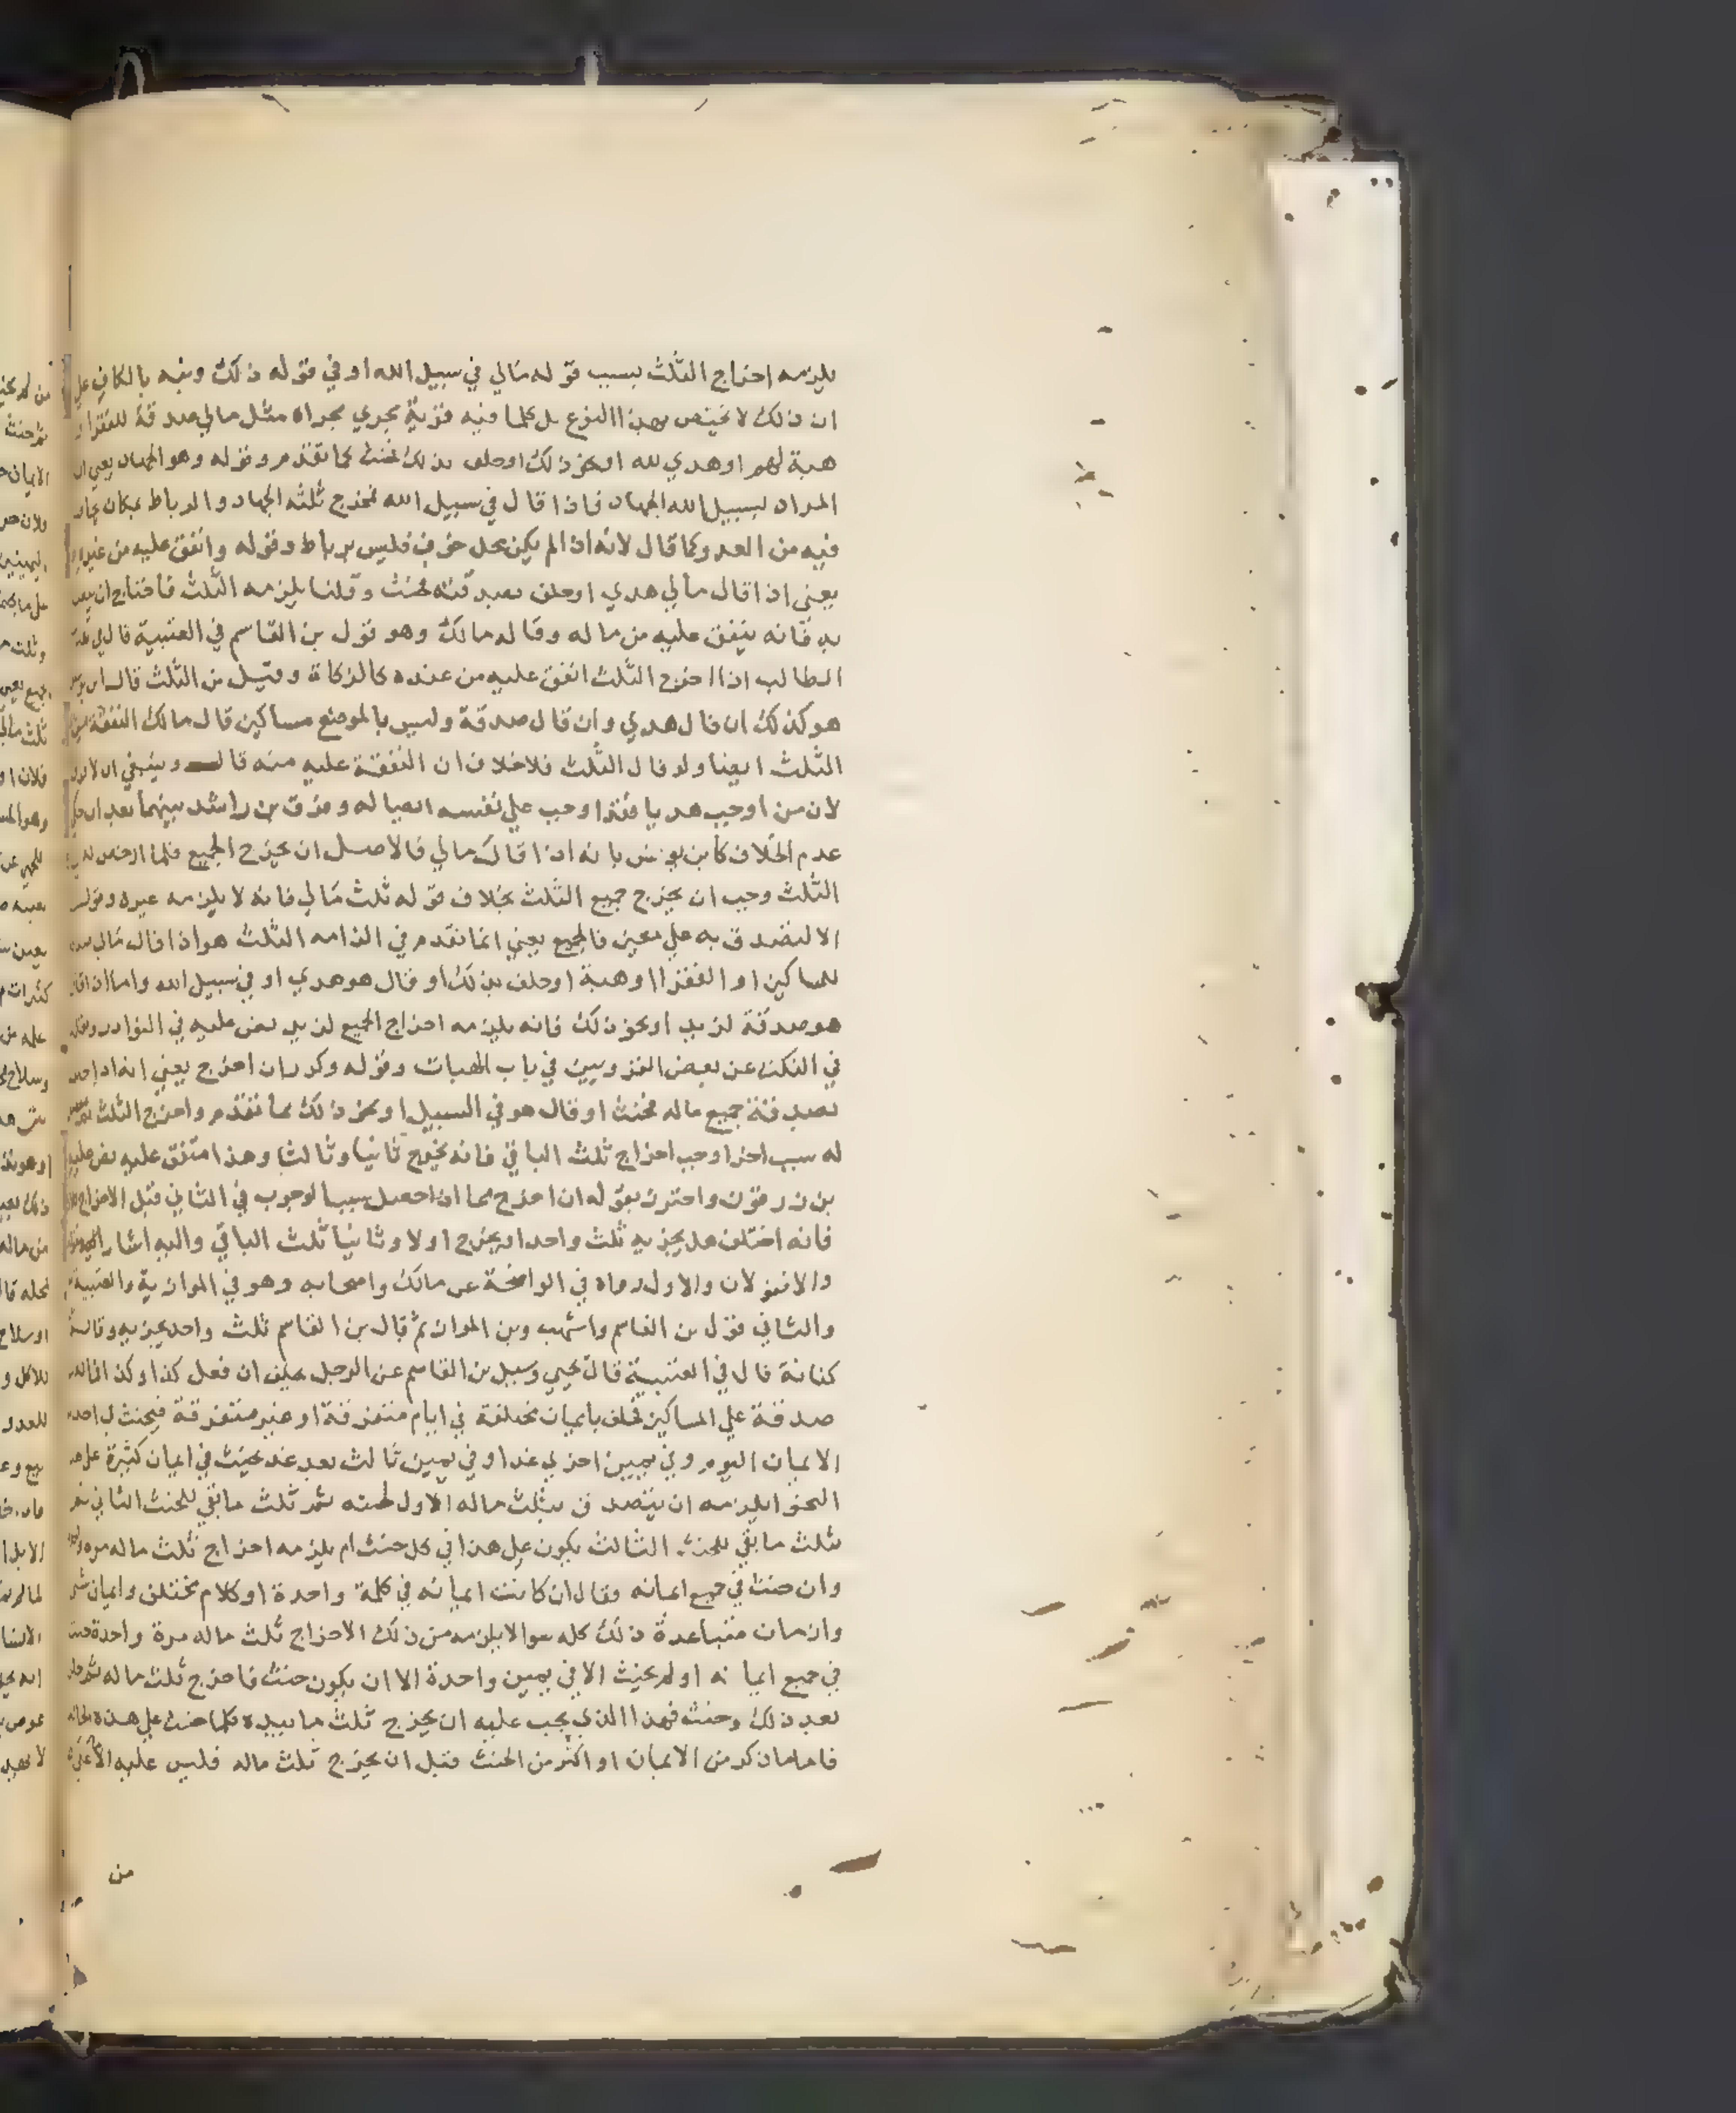 يلزمه اخراج الثلث بسبب قوله مالي في سبيل الله او في قوله ذلك ونبه بالكاف علي
ان ذلك لا يختص بهذا النوع بل كلما فيه قربة يجري مجراه مثل مالي صدقة للفقرا او
هبة لهم او هدي لله او نحو ذلك او حلف بذلك فحنث كما تقدم وقوله وهو الجهاد يعني ان
المراد بسبيل الله الجهاد فاذا قال في سبيل الله فخرج ثلثه الجهاد والرباط بمكان يخاف
فيه من العدو كما قال لانه اذا لم يكن محل خوف فليس برباط وقوله وانفق عليه من غيره
يعني اذا قال مالي هدي او حلف بصدقته فحنث وقلنا يلزمه الثلث فاحتاج ان
يد فانه ينفق عليه من ماله وقاله مالك وهو قول بن القاسم في العتبية قال في
الطالب اذا اخرج الثلث انفق عليه من عنده كالزكاة وقيل من الثلث قال
هو كذلك ان قال هدي وان قال صدقة وليس بالموضع مساكين قال مالك النفقة من
الثلث ايضا ولو قال الثلث فلا خلاف ان النفقة عليه منه قال وينبغي ان لا
لان من اوجب هديا فقد اوجب علي نفسه ايصاله وفرق بن راشد بينهما بعد ان حكي
عدم الخلاف كابن يونس بانه اذا قال مالي فالاصل ان يخرج الجميع فلما ارخص له في
الثلث وجب ان يخرج جميع الثلث بخلاف قوله ثلث مالي فانه لا يلزمه غيره وقوله
الا لتصدق به علي معين فالجميع يعني انما تقدم في الزامه الثلث هو اذا قال مالي صدقة
للمساكين او الفقرا او هبة او حلف بذلك او قال هو هدي او في سبيل الله واما ان قال
هو صدقة لزيد او نحو ذلك فانه يلزمه اخراج الجميع لزيد نص عليه في النوادر ونقله
في النكت عن بعض القرويين في باب الهبات وقوله وكرر ان اخرج يعني انه اذا حلف
بصدقة جميع ماله فحنث او قال هو في السبيل او نحو ذلك مما تقدم واخرج الثلث ثم
له سبب اخر اوجب اخراج ثلث الباقي فانه يخرج ثانيا وثالثا وهذا متفق عليه نص عليه
بن زرقون واحترز بقوله ان اخرج مما اذا حصل سببا لوجوب في الثاني قبل الاخراج
فانه اختلف هل يجزيه ثلث واحد او يخرج اولا وثانيا ثلث الباقي واليه اشار بقوله
والا فقولان والاول رواه في الواضحة عن مالك واصحابه وهو في الموازية والعتبية
والثاني قول بن القاسم واشهب وبن المواز ثم قال بن القاسم ثلث واحد يجزيه وقاله
كنانة قال في العتبية قال يحيي وسيل بن القاسم عن الرجل يحلف ان فعل كذا وكذا فماله
صدقة علي المساكين فحلف بايمان مختلفة في ايام متفرقة او غير متفرقة فيحنث في احد
الايمان اليوم وفي يمين اخري غدا وفي يمين ثالث بعد غد يحنث في ايمان كثيرة علي هذا
النحو ايلزمه ان يتصدق بثلث ماله الاول لحنثه ثم ثلث ما بقي للحنث الثاني ثم
ثلث ما بقي للحنث الثالث يكون علي هذا في كل حنث ام يلزمه اخراج ثلث ماله مرة واحدة
وان حنث في جميع ايمانه فقال ان كانت ايمانه في كلمة واحدة او كلام مختلف وايمان شتي
وازمان متباعدة ذلك كله سوا لا يلزمه من ذلك الا اخراج ثلث ماله مرة واحدة حنث
في جميع ايمانه او لم يحنث الا في يمين واحدة الا ان يكون حنث فاخرج ثلث ماله ثم حلف
بعد ذلك وحنث فهذا الذي يجب عليه ان يخرج ثلث ما بيده كلما حنث علي هذه الحال
فاما ما كرر من الايمان او اكثر من الحنث قبل ان يخرج ثلث ماله فليس عليه الا
من